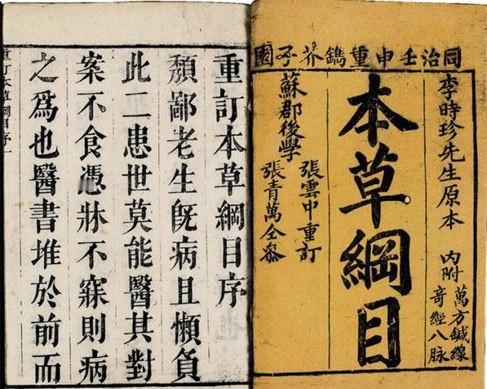 同治壬申重鐫芥子園
李時珍先生原本
内附
萬方鍼線
奇經八脉
本草綱目
張雲中重訂
蘇郡後學
張青萬仝參
重訂本草綱目序
頽鄙老生旣病且懶負
此二患世莫能醫其對
案不食憑牀不寐則病
之爲也醫書堆於前而
重訂本草綱目序